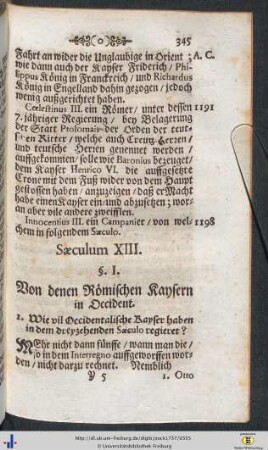 o 345
Fahrt an wider die Unglaubige in Orient / A. C.
wie dann auch der Kayser Friderich / Phi-
lippus König in Franckreich / und Richardus
König in Engelland dahin gezogen / jedoch
wenig außgerichtet haben.
Cœlestinus III. ein Römer / unter dessen 1191
7. jähriger Regierung / bey Belagerung
der Statt Ptolomais der Orden der teut-
schen Ritter / welche auch Creutz-Herren /
und teutsche Herren genennet werden /
auffgekommen / solle wie Baronius bezeuget /
dem Kayser Henrico VI. die auffgesetzte
Crone mit dem Fuß wider von dem Haupt
gestossen haben / anzuzeigen / daß er Macht
habe einen Kayser ein- und abzusetzen ; wor-
an aber vile andere zweifflen.
Innocentius III. ein Campanier / von wel- 1198
chem in folgendem Sæculo.
Sæculum XIII.
§. I.
Von denen Römischen Kaysern
in Occident.
1. Wie vil Occidentalische Kayser haben
in dem dreyzehenden Sæculo regieret?
MEhr nicht dann fünffe / wann man die /
so in dem Interregno auffgeworffen wor-
den / nicht darzu rechnet. Nemblich
Y 5 1. Otto
http://dl.ub.uni-freiburg.de/diglit/rock1757/0515
© Universitätsbibliothek Freiburg